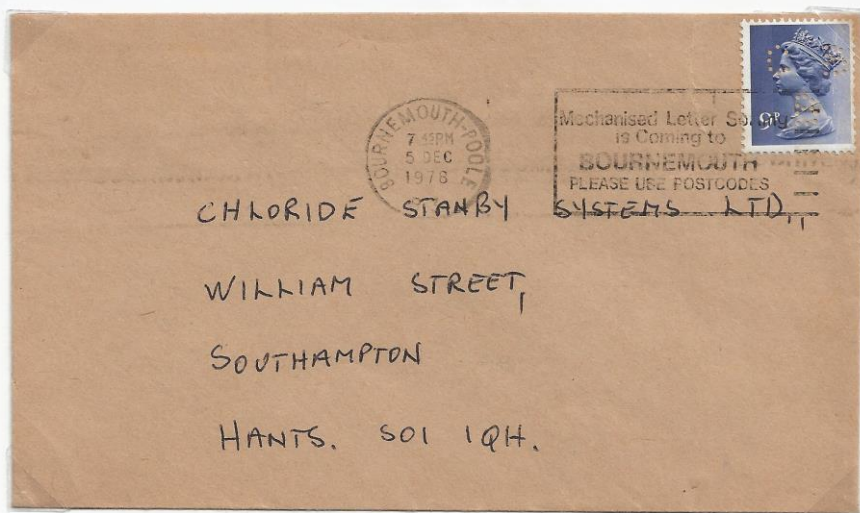 BOURNEMOUTH-POOLE
7 45PM
5 DEC
1978
Mechanised Letter
is Coming to
BOURNEMOUTH
PLEASE USE POSTCODES
9P
CHLORIDE STANBY SYSTEMS LTD.,
WILLIAM STREET,
SOUTHAMPTON
HANTS. SO1 1QH.